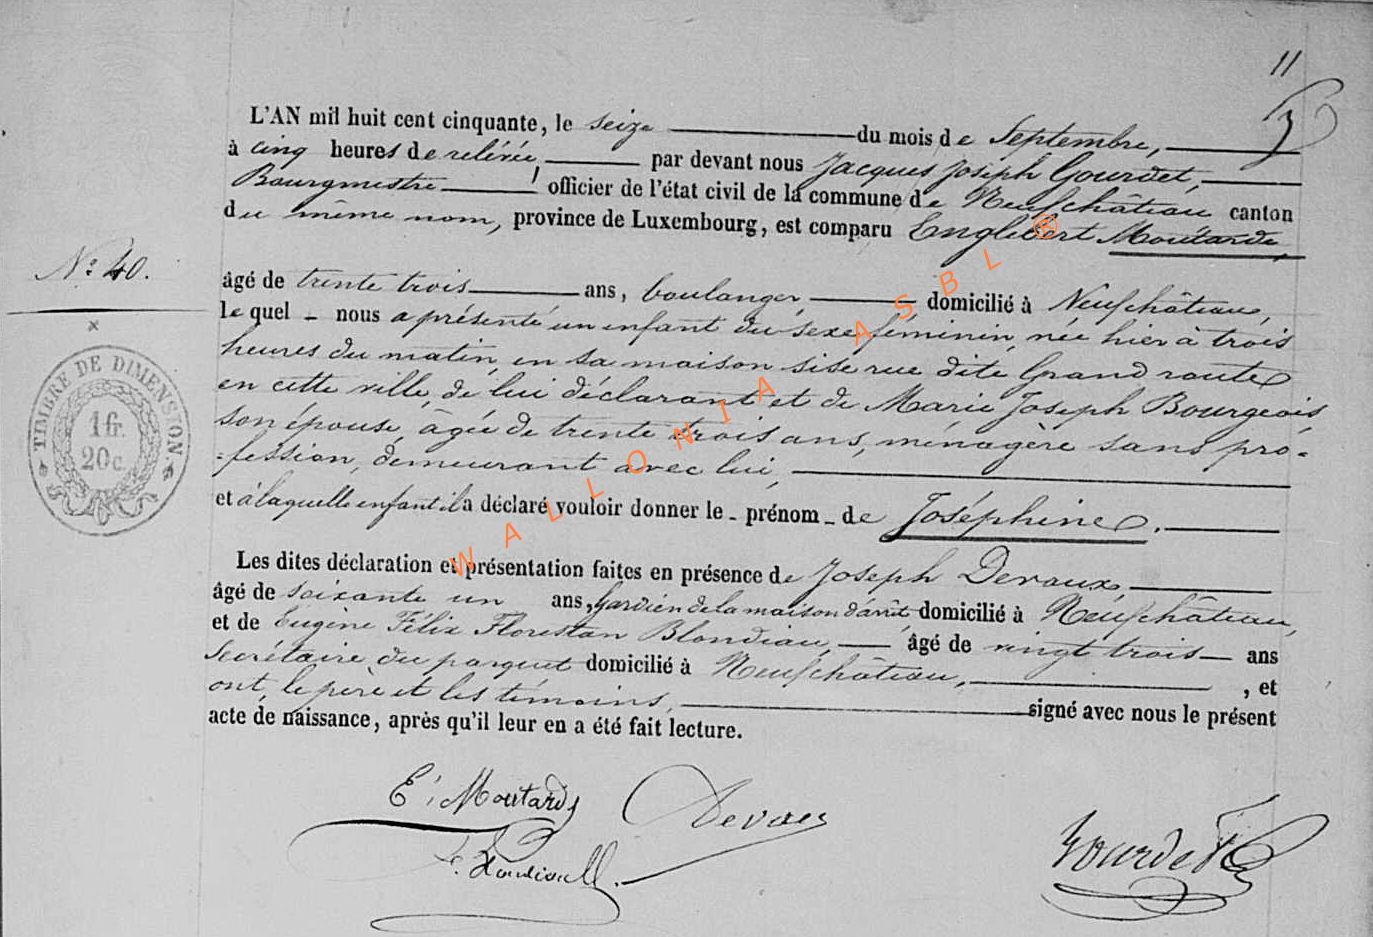 11
L'AN mil huit cent cinquante, le seize du mois de Septembre,
à cinq heures de relévée par devant nous Jacques Joseph Gourdet,
Bourgmestre, officier de l'état civil de la commune de Neufchâteau canton
du même nom, province de Luxembourg, est comparu Englebert Moutarde,
N° 40.
âgé de trente trois ans, boulanger, domicilié à Neufchâteau,
le quel - nous a présenté un enfant du sexe féminin, née hier à trois
heures du matin, en sa maison sise rue dite Grand route
en cette ville, de lui déclarant et de Marie Joseph Bourgeois,
son épouse, âgée de trente trois ans, ménagère sans pro-
fession, demeurant avec lui,
et à laquelle enfant il a déclaré vouloir donner le - prénom - de Joséphine.
Les dites déclaration et présentation faites en présence de Joseph Devaux,
âgé de soixante un ans, gardien de la maison d'arrêt domicilié à Neufchâteau,
et de Eugène Félix Florestan Blondiau, âgé de vingt trois ans
Secrétaire du parquet domicilié à Neufchâteau, , et
ont, le père et les témoins, signé avec nous le présent
acte de naissance, après qu'il leur en a été fait lecture.
TIMBRE DE DIMENSION
1 fr.
20 c.
E. Moutarde Devaux
Gourdet
WALLONIA ASBL ®